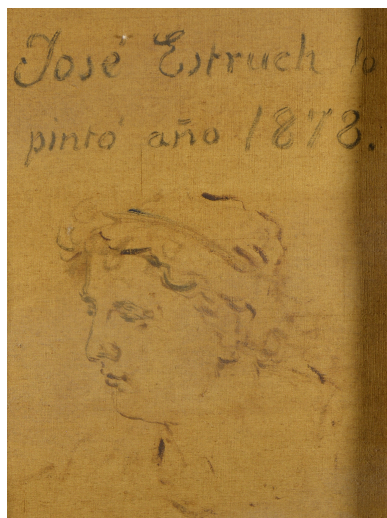 José Estruch lo
pintó año 1878.